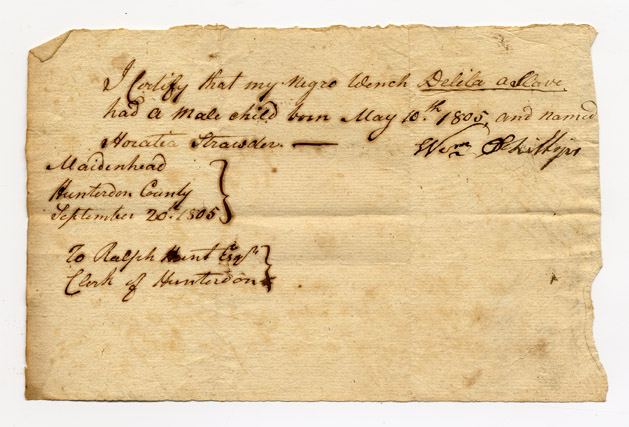 I Certify that my Negro Wench Delila a Slave
had a Male child born May 10.th 1805 and named
Horatio Strawder. —
Wm Phillips
Maidenhead
Hunterdon County
September 20.th 1805
To Ralph Hunt Esqr
Clerk of Hunterdon